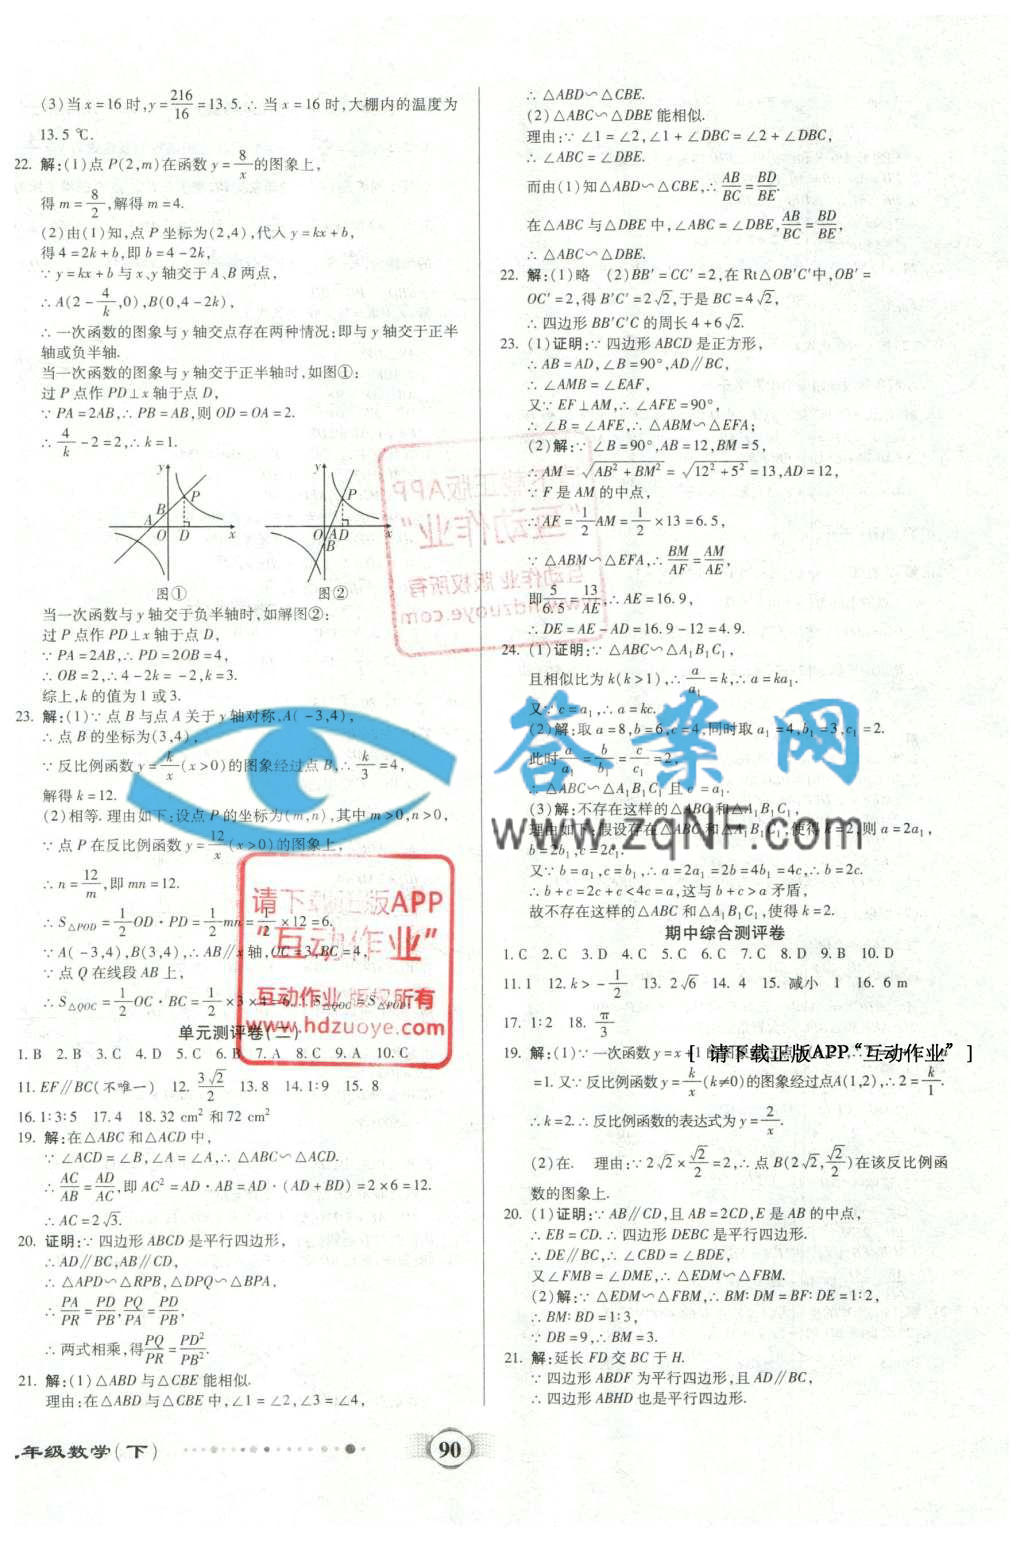 (3)当x=16时,y=216/16=13.5.∴当x=16时,大棚内的温度为
13.5 ℃.
22. 解:(1)点P(2,m)在函数y=8/x的图象上,
得m=8/2,解得m=4.
(2)由(1)知,点P坐标为(2,4),代入y=kx+b,
得4=2k+b,即b=4-2k,
∵y=kx+b与x、y轴交于A、B两点,
∴A(2-4/k,0),B(0,4-2k),
∴一次函数的图象与y轴交点存在两种情况:即与y轴交于正半
轴或负半轴.
当一次函数的图象与y轴交于正半轴时,如图①:
过P点作PD⊥x轴于点D,
∵PA=2AB,∴PB=AB,则OD=OA=2.
∴4/k-2=2,∴k=1.
y P B A O D x
y P O A D B x
图① 图②
当一次函数与y轴交于负半轴时,如解图②:
过P点作PD⊥x轴于点D,
∵PA=2AB,∴PD=2OB=4,
∴OB=2,∴4-2k=-2,k=3.
综上,k的值为1或3.
23. 解:(1)∵点B与点A关于y轴对称,A(-3,4),
∴点B的坐标为(3,4),
∵反比例函数y=k/x(x>0)的图象经过点B,∴k/3=4,
解得k=12.
(2)相等.理由如下:设点P的坐标为(m,n),其中m>0,n>0,
∵点P在反比例函数y=12/x(x>0)的图象上,
∴n=12/m,即mn=12.
∴S△POD=1/2OD·PD=1/2mn=1/2×12=6,
∵A(-3,4),B(3,4),∴AB∥x轴,OC=3,BC=4,
∵点Q在线段AB上,
∴S△QOC=1/2OC·BC=1/2×3×4=6.∴S△QOC=S△POD.
单元测评卷(二)
1. B 2. B 3. C 4. D 5. C 6. B 7. A 8. C 9. A 10. C
11. EF∥BC(不唯一) 12. 3√2/2 13. 8 14. 1∶9 15. 8
16. 1∶3∶5 17. 4 18. 32 cm² 和 72 cm²
19. 解:在△ABC和△ACD中,
∵∠ACD=∠B,∠A=∠A,∴△ABC∽△ACD.
∴AC/AB=AD/AC,即AC²=AD·AB=AD·(AD+BD)=2×6=12.
∴AC=2√3.
20. 证明:∵四边形ABCD是平行四边形,
∴AD∥BC,AB∥CD,
∴△APD∽△RPB,△DPQ∽△BPA,
∴PA/PR=PD/PB,PQ/PA=PD/PB,
∴两式相乘,得PQ/PR=PD²/PB².
21. 解:(1)△ABD与△CBE能相似.
理由:在△ABD与△CBE中,∠1=∠2,∠3=∠4,
∴△ABD∽△CBE.
(2)△ABC∽△DBE能相似.
理由:∵∠1=∠2,∠1+∠DBC=∠2+∠DBC,
∴∠ABC=∠DBE.
而由(1)知△ABD∽△CBE,∴AB/BC=BD/BE.
在△ABC与△DBE中,∠ABC=∠DBE,AB/BC=BD/BE,
∴△ABC∽△DBE.
22. 解:(1)略 (2)BB′=CC′=2,在Rt△OB′C′中,OB′=
OC′=2,得B′C′=2√2,于是BC=4√2,
∴四边形BB′C′C的周长4+6√2.
23. (1)证明:∵四边形ABCD是正方形,
∴AB=AD,∠B=90°,AD∥BC,
∴∠AMB=∠EAF,
又∵EF⊥AM,∴∠AFE=90°,
∴∠B=∠AFE,∴△ABM∽△EFA;
(2)解:∵∠B=90°,AB=12,BM=5,
∴AM=√(AB²+BM²)=√(12²+5²)=13,AD=12,
∵F是AM的中点,
∴AF=1/2AM=1/2×13=6.5,
∵△ABM∽△EFA,∴BM/AF=AM/AE,
即5/6.5=13/AE,∴AE=16.9,
∴DE=AE-AD=16.9-12=4.9.
24. (1)证明:∵△ABC∽△A₁B₁C₁,
且相似比为k(k>1),∴a/a₁=k,∴a=ka₁.
又∵c=a₁,∴a=kc.
(2)解:取a=8,b=6,c=4,同时取a₁=4,b₁=3,c₁=2.
此时a/a₁=b/b₁=c/c₁=2,
∴△ABC∽△A₁B₁C₁且c=a₁.
(3)解:不存在这样的△ABC和△A₁B₁C₁,
理由如下:假设存在△ABC和△A₁B₁C₁,使得k=2,则a=2a₁,
b=2b₁,c=2c₁.
又∵b=a₁,c=b₁,∴a=2a₁=2b=4b₁=4c,∴b=2c.
∴b+c=2c+c<4c=a,这与b+c>a矛盾,
故不存在这样的△ABC和△A₁B₁C₁,使得k=2.
期中综合测评卷
1. C 2. C 3. D 4. C 5. C 6. C 7. C 8. D 9. B 10. D
11. 1 12. k>-1/2 13. 2√6 14. 4 15. 减小 1 16. 6 m
17. 1∶2 18. π/3
19. 解:(1)∵一次函数y=x+1的图象
=1.又∵反比例函数y=k/x(k≠0)的图象经过点A(1,2),∴2=k/1.
∴k=2.∴反比例函数的表达式为y=2/x.
(2)在. 理由:∵2√2×√2/2=2,∴点B(2√2,√2/2)在该反比例函
数的图象上.
20. (1)证明:∵AB∥CD,且AB=2CD,E是AB的中点,
∴EB=CD.∴四边形DEBC是平行四边形.
∴DE∥BC,∴∠CBD=∠BDE,
又∠FMB=∠DME,∴△EDM∽△FBM.
(2)解:∵△EDM∽△FBM,∴BM∶DM=BF∶DE=1∶2,
∴BM∶BD=1∶3,
∵DB=9,∴BM=3.
21. 解:延长FD交BC于H.
∵四边形ABDF为平行四边形,且AD∥BC,
∴四边形ABHD也是平行四边形.
年级数学(下)
90
请下载正版APP
“互动作业”
互动作业 版权所有
www.hdzuoye.com
请下载正版APP
“互动作业”
互动作业 版权所有
www.hdzuoye.com
答案网
www.zqNF.com
[ 请下载正版APP“互动作业” ]